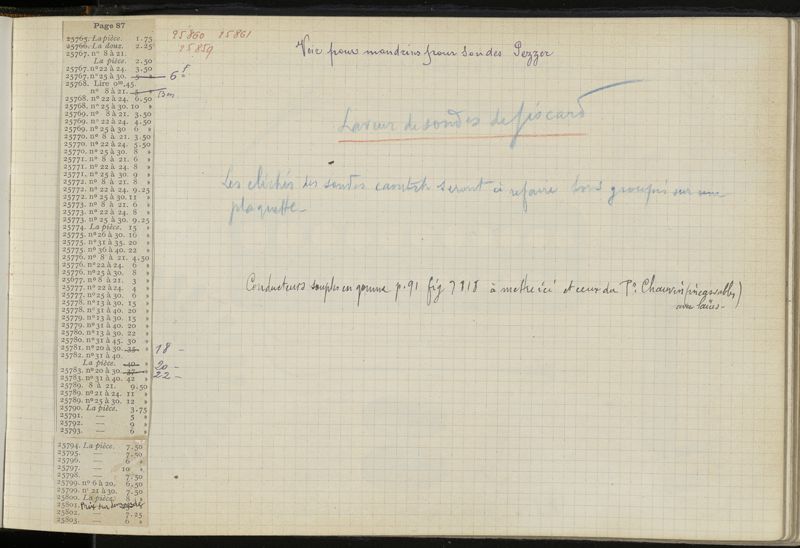 Page 87
25765. La pièce. 1.75
25766. La douz. 2.25
25767. nº 8 à 21.
La pièce. 2.50
25767. nº 22 à 24. 3.50
25767. nº 25 à 30. 6 f
25768. Lire 0m,45.
nº 8 à 21.
25768. nº 22 à 24. 6.50
25768. nº 25 à 30. 10 »
25769. nº 8 à 21. 3.50
25769. nº 22 à 24. 4.50
25769. nº 25 à 30. 6 »
25770. nº 8 à 21. 3.50
25770. nº 22 à 24. 5.50
25770. nº 25 à 30. 8 »
25771. nº 8 à 21. 6 »
25771. nº 22 à 24. 8 »
25771. nº 25 à 30. 9 »
25772. nº 8 à 21. 8 »
25772. nº 22 à 24. 9.25
25772. nº 25 à 30. 11 »
25773. nº 8 à 21. 6 »
25773. nº 22 à 24. 8 »
25773. nº 25 à 30. 9.25
25774. La pièce. 15 »
25775. nº 26 à 30. 16 »
25775. nº 31 à 35. 20 »
25775. nº 36 à 40. 22 »
25776. nº 8 à 21. 4.50
25776. nº 22 à 24. 6 »
25776. nº 25 à 30. 8 »
25777. nº 8 à 21. 3 »
25777. nº 22 à 24. 4 »
25777. nº 25 à 30. 6 »
25778. nº 13 à 30. 15 »
25778. nº 31 à 40. 20 »
25779. nº 13 à 30. 15 »
25779. nº 31 à 40. 20 »
25780. nº 13 à 30. 22 »
25780. nº 31 à 45. 30 »
25781. nº 20 à 30. 35 » 18 —
25782. nº 31 à 40.
La pièce. 40 » 20 —
25783. nº 20 à 30. 37 » 22 —
25783. nº 31 à 40. 42 »
25789. 8 à 21. 9.50
25789. nº 21 à 24. 11 »
25789. nº 25 à 30. 12 »
25790. La pièce. 3.75
25791. — 5 »
25792. — 9 »
25793. — 6 »
25794. La pièce. 7.50
25795. — 7.50
25796. — 6 »
25797. — 10 »
25798. — 7.50
25799. nº 6 à 20. 6.50
25799. nº 21 à 30. 7.50
25800. La pièce. 8 »
25801. Prix sur demande
25802. — 7.25
25803. — 6 »
25860 25861
25859
Voir pour mandrins pour sondes Pezzer
Laveur de sondes de Jiscard
Les clichés des sondes caoutch seront à refaire tous groupés sur une
plaquette
Conducteurs souples en gomme p. 91 fig 7818 à mettre ici et ceux du Pr Chauvin (incassables)